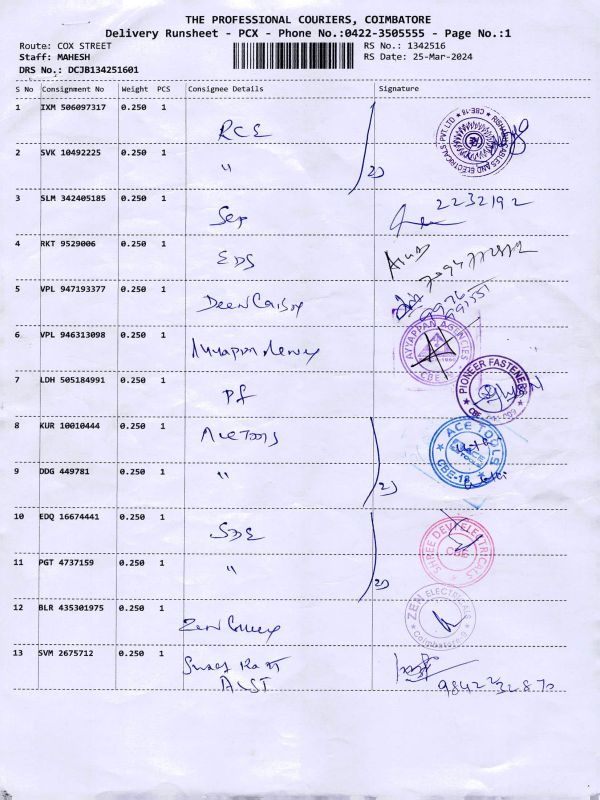 THE PROFESSIONAL COURIERS, COIMBATORE
Delivery Runsheet - PCX - Phone No.:0422-3505555 - Page No.:1
Route: COX STREET
RS No.: 1342516
Staff: MAHESH
RS Date: 25-Mar-2024
DRS No.: DCJB134251601
S No Consignment No Weight PCS Consignee Details Signature
1 IXM 506097317 0.250 1 RCE
CABLES AND ELECTRICALS PVT. LTD ★ CBE-18 ★
2 SVK 10492225 0.250 1 "
3 SLM 342405185 0.250 1 2232192
4 RKT 9529006 0.250 1 EDS
5 VPL 947193377 0.250 1
6 VPL 946313098 0.250 1 Ayyappan
AYYAPPAN AGENCIES
CBE
7 LDH 505184991 0.250 1 Pf
PIONEER FASTENERS
8 KUR 10010444 0.250 1 Ace Tools
★ ACE TOOLS ★ CBE-18
ACE TOOLS
9 DDG 449781 0.250 1 "
10 EDQ 16674441 0.250 1 SDE
SHREE DEVI ELECTRICALS
CBE
11 PGT 4737159 0.250 1 "
12 BLR 435301975 0.250 1 Zen
ZEN ELECTRICALS
★ Coimbatore ★
13 SVM 2675712 0.250 1
9842232870